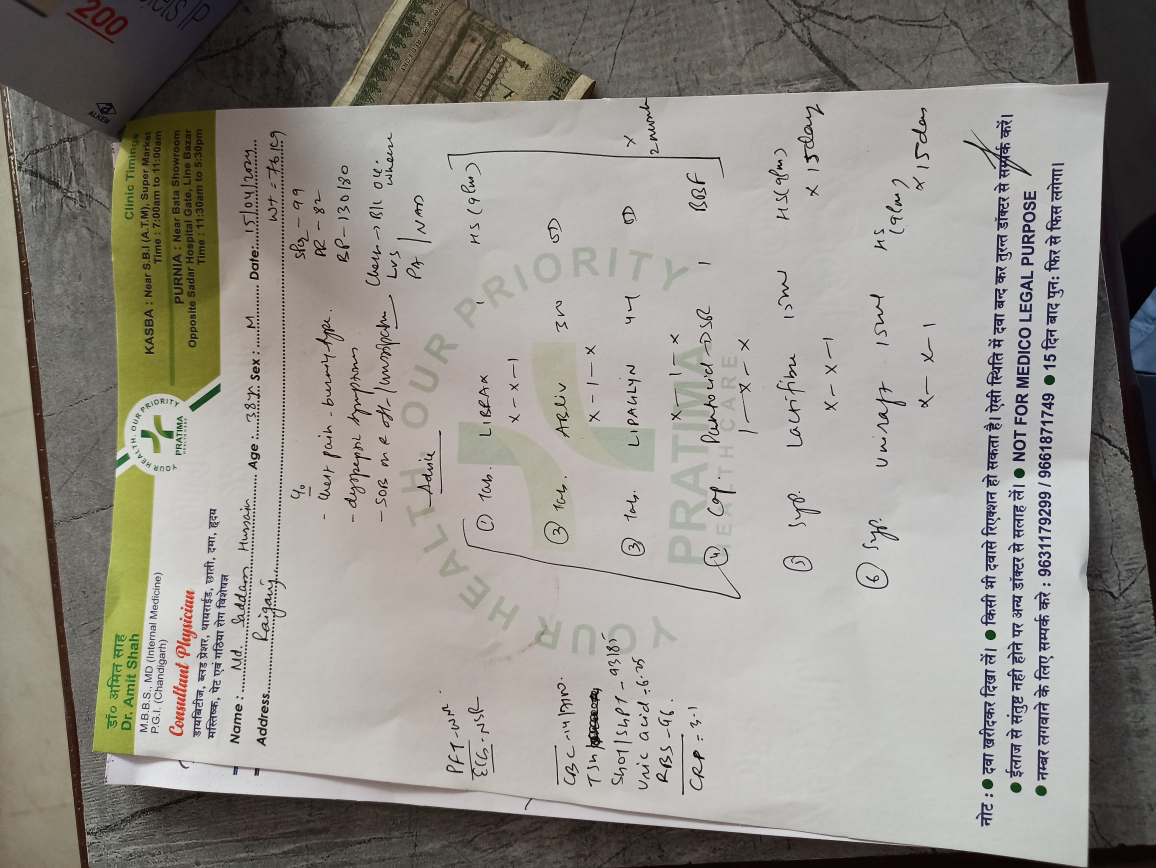 200
ALKEM
डॉ० अमित साह
Dr. Amit Shah
M.B.B.S., MD (Internal Medicine)
P.G.I. (Chandigarh)
Consultant Physician
डायबिटीज, ब्लड प्रेशर, थायराईड, छाती, दमा, हृदय
मस्तिष्क, पेट एवं गठिया रोग विशेषज्ञ
YOUR HEALTH, OUR PRIORITY
PRATIMA
Clinic Timings
KASBA : Near S.B.I (A.T.M), Super Market
Time : 7:00am to 11:00am
PURNIA : Near Bata Showroom
Opposite Sadar Hospital Gate, Line Bazar
Time : 11:30am to 5:30pm
Name : Md. Saddam Hussain Age : 38 yr Sex : M Date 15/04/2024
Address Raiganj Wt = 76 kg
c/o
- Chest pain - burning type.
- dyspeptic symptoms
- SOB on & off
SPO2 - 99
PR - 82
BP - 130/80
Chest → B/L
PA / NAD
Advice
PFT - WNL
ECG - NSR
① Tab. LIBRAX 1 HS (9pm)
x - x - 1
② Tab. ABliv 300 OD
x - 1 - x
③ Tab. LIPAGLYN 4mg OD
x - 1 - x
④ Cap. Pantocid - DSR 1 BBF
1 - x - x
x 2 month
CBC - 14/
TSH
SGOT/SGPT - 93/85
Uric acid = 6.25
RBS - 96
CRP = 3.1
⑤ Syp. Lactifibre 15ml HS (9pm)
x - x - 1 x 15 day
⑥ Syp. 15ml HS (9pm)
x - x - 1 x 15 day
YOUR HEALTH OUR PRIORITY
PRATIMA
HEALTHCARE
नोट : ● दवा खरीदकर दिखा लें। ● किसी भी दवासे रिएक्शन हो सकता है। ऐसी स्थिति में दवा बन्द कर तुरन्त डॉक्टर से सम्पर्क करें।
● ईलाज से संतुष्ट नही होने पर अन्य डॉक्टर से सलाह लें। ● NOT FOR MEDICO LEGAL PURPOSE
● नम्बर लगवाने के लिए सम्पर्क करे : 9631179299 / 9661871749 ● 15 दिन बाद पुनः फिर से फिस लगेगा।